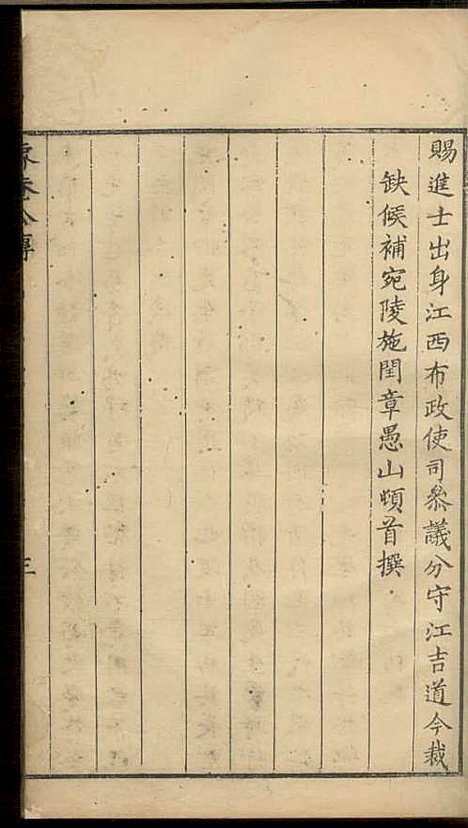 賜進士出身江西布政使司參議分守江吉道今裁
缺候補宛陵施閏章愚山頓首撰
公傳
三